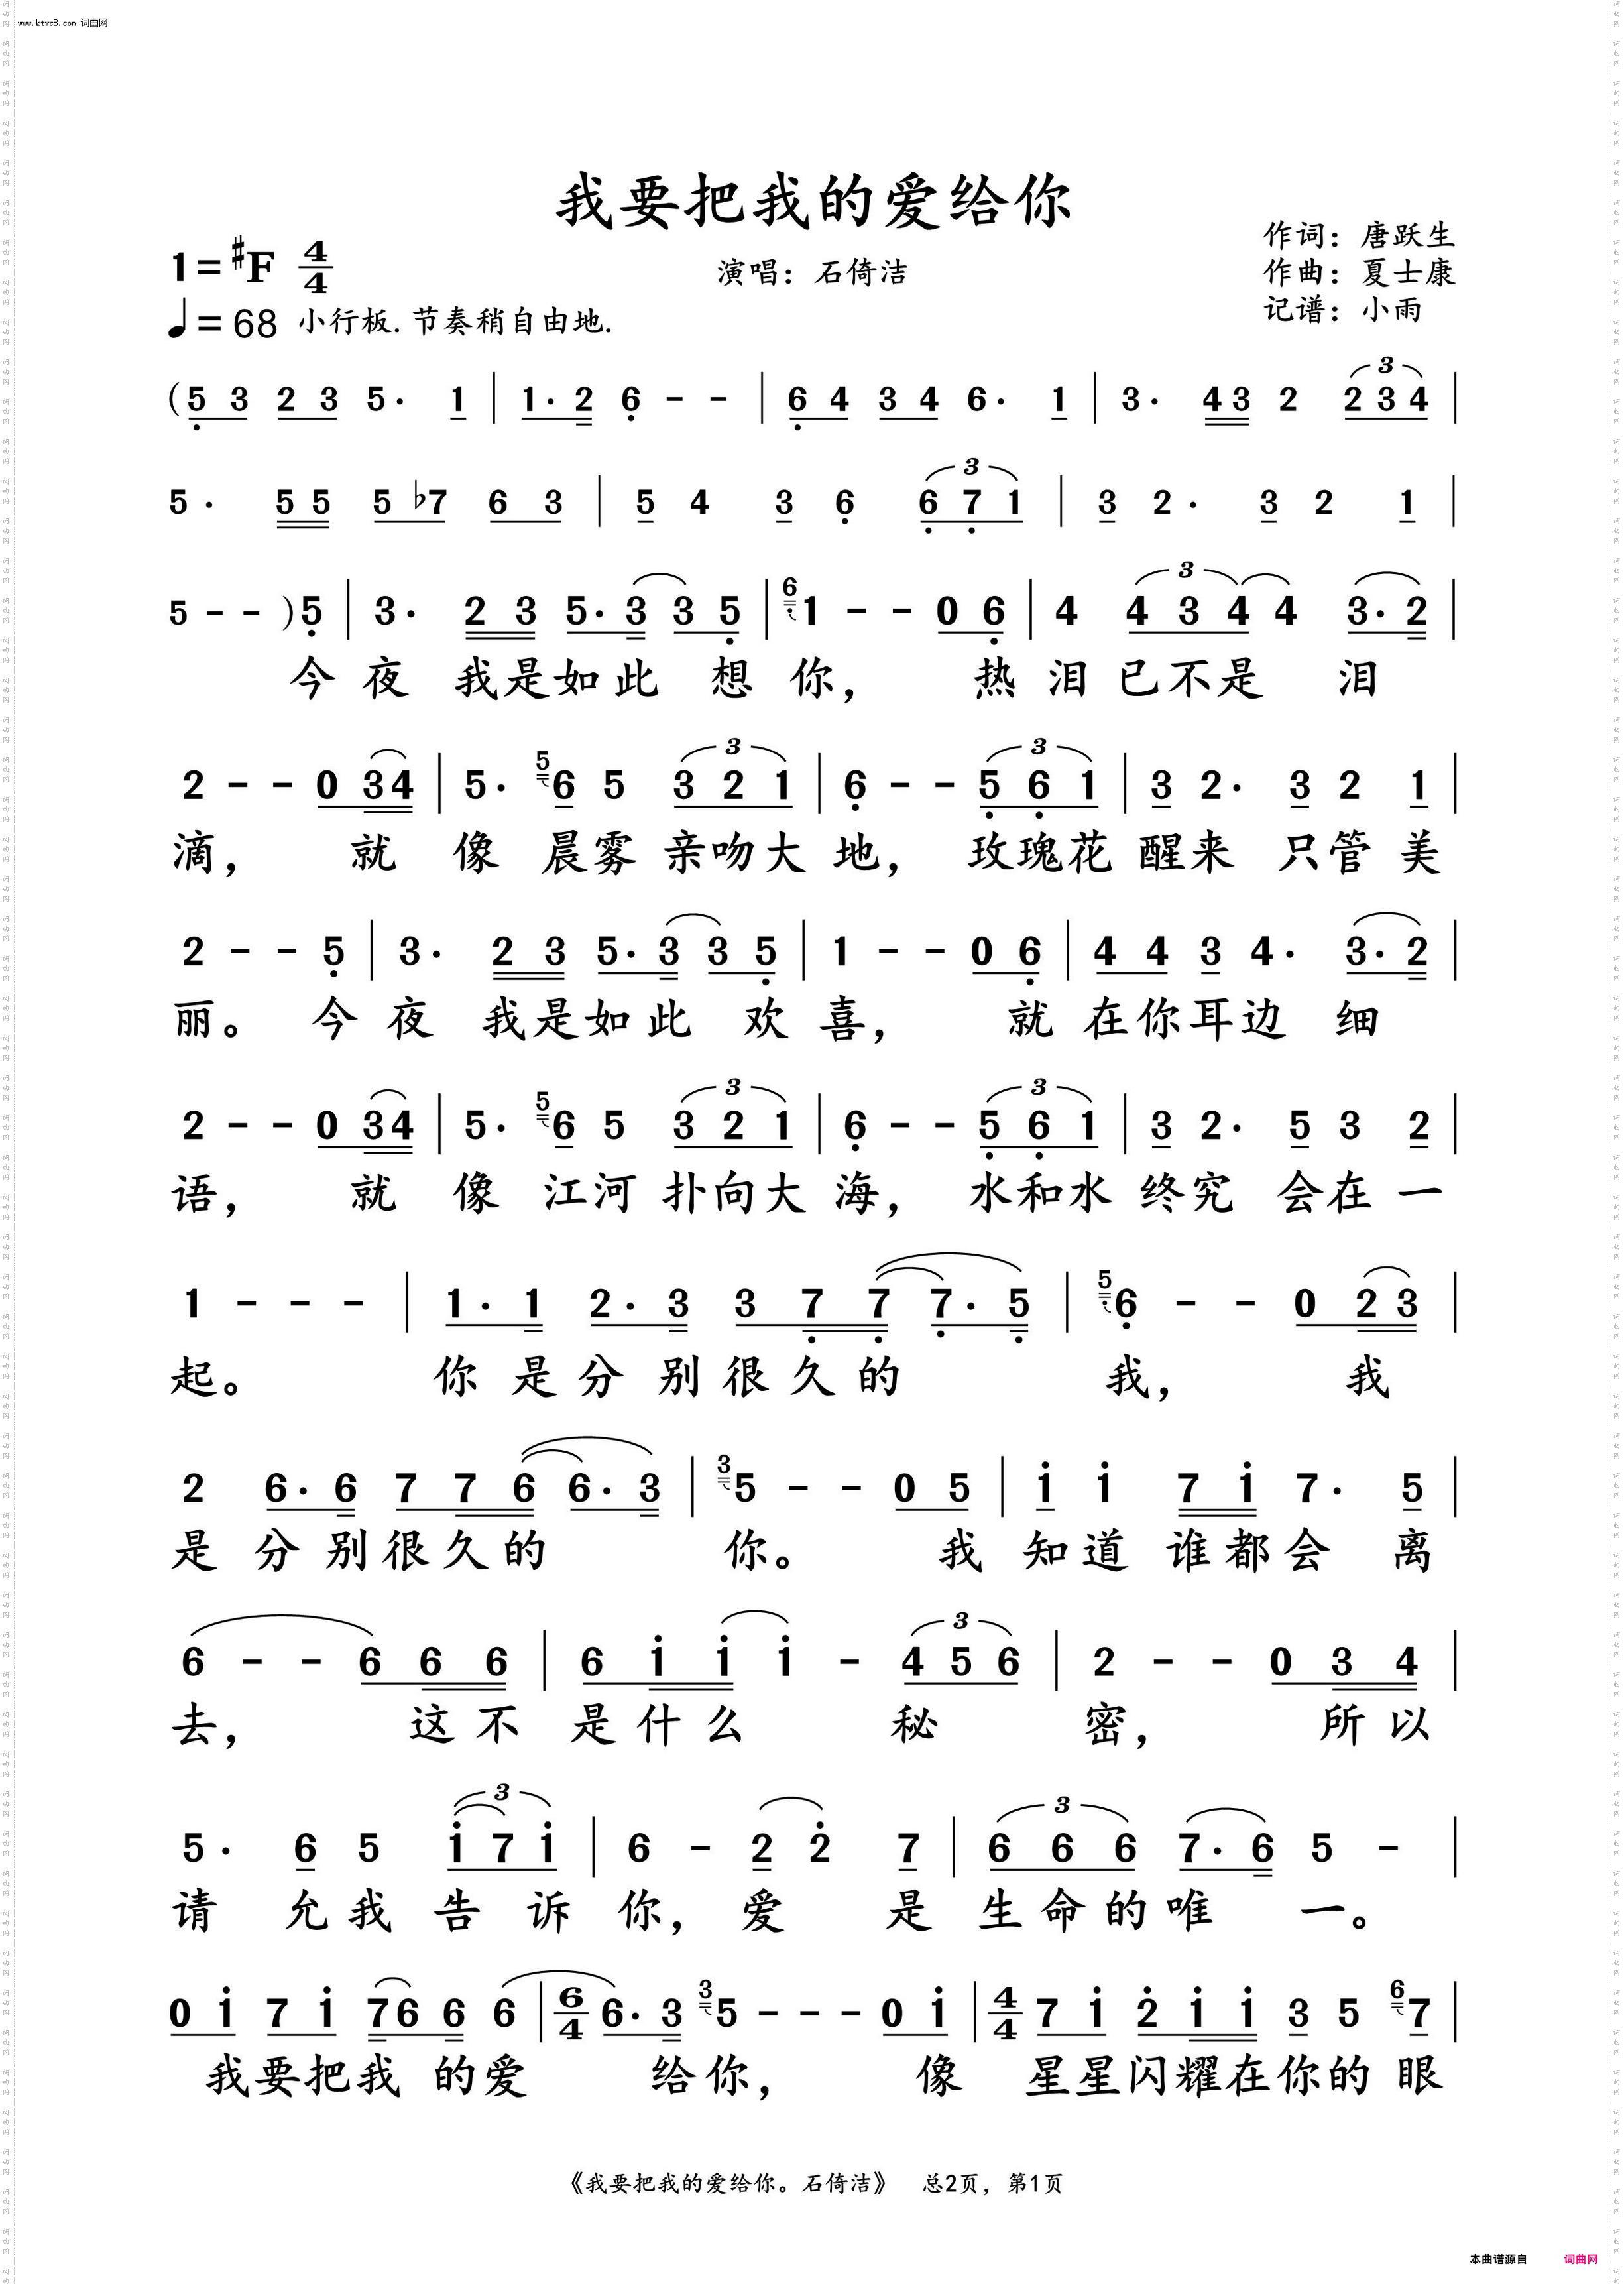 www.ktvc8.com 词曲网
我要把我的爱给你
作词：唐跃生
1=#F 4/4
演唱：石倚洁
作曲：夏士康
♩=68 小行板.节奏稍自由地.
记谱：小雨
(5 3 2 3 5· 1 | 1·2 6 - - | 6 4 3 4 6· 1 | 3· 4 3 2 2 3 4 |
5· 5 5 5 ♭7 6 3 | 5 4 3 6 6 7 1 | 3 2· 3 2 1 |
5 - - )5 | 3· 2 3 5·3 3 5 | 6 1 - - 0 6 | 4 4 3 4 4 3·2 |
今夜 我是如此 想 你， 热 泪 已不是 泪
2 - - 0 3 4 | 5· 5 6 5 3 2 1 | 6 - - 5 6 1 | 3 2· 3 2 1 |
滴， 就 像 晨雾 亲吻大 地， 玫瑰花 醒来 只管 美
2 - - 5 | 3· 2 3 5·3 3 5 | 1 - - 0 6 | 4 4 3 4· 3·2 |
丽。 今 夜 我是如此 欢 喜， 就 在你耳边 细
2 - - 0 3 4 | 5· 5 6 5 3 2 1 | 6 - - 5 6 1 | 3 2· 5 3 2 |
语， 就 像 江河 扑向大 海， 水和水 终究 会在 一
1 - - - | 1·1 2·3 3 7 7 7·5 | 5 6 - - 0 2 3 |
起。 你 是分 别很久的 我， 我
2 6·6 7 7 6 6·3 | 3 5 - - 0 5 | 1 1 7 1 7· 5 |
是 分 别很久的 你。 我 知道 谁都会 离
6 - - 6 6 6 | 6 1 1 1 - 4 5 6 | 2 - - 0 3 4 |
去， 这不 是什么 秘 密， 所以
5· 6 5 1 7 1 | 6 - 2 2 7 | 6 6 6 7·6 5 - |
请 允我 告 诉 你，爱 是 生命的唯 一。
0 1 7 1 7 6 6 6 | 6/4 6·3 3 5 - - - 0 1 | 4/4 7 1 2 1 1 3 5 6 7 |
我要把我 的爱 给你， 像 星星闪耀在你的 眼
《我要把我的爱给你。石倚洁》 总2页，第1页
本曲谱源自 词曲网